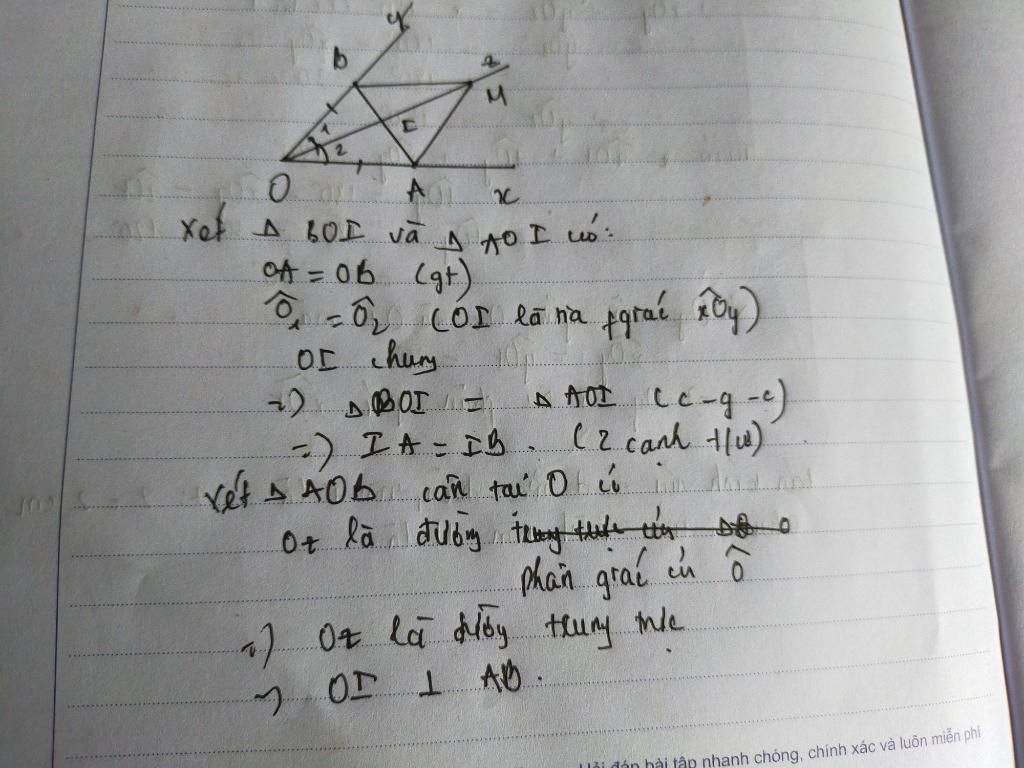 y
B
z
M
I
1
2
O
A
x
Xét Δ BOI và Δ AOI có:
OA = OB (gt)
Ô₁ = Ô₂ (OI là tia pgiác xÔy)
OI chung
=) Δ BOI = Δ AOI (c-g-c)
=) IA = IB. (2 cạnh t/ứ)
Xét Δ AOB cân tại O có
Oz là đường
phân giác của Ô
=) Oz là đường trung trực
=) OI ⊥ AB.
Hỏi đáp bài tập nhanh chóng, chính xác và luôn miễn phí